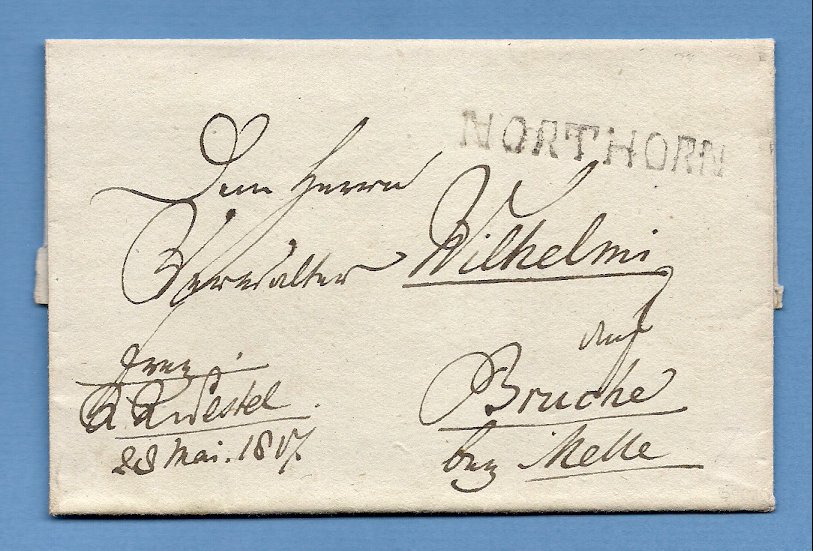 NORTHORN
Dem Herrn
Verwalter Wilhelmi
auf
Bruche
bey Melle
franz.
28 Mai. 1817.